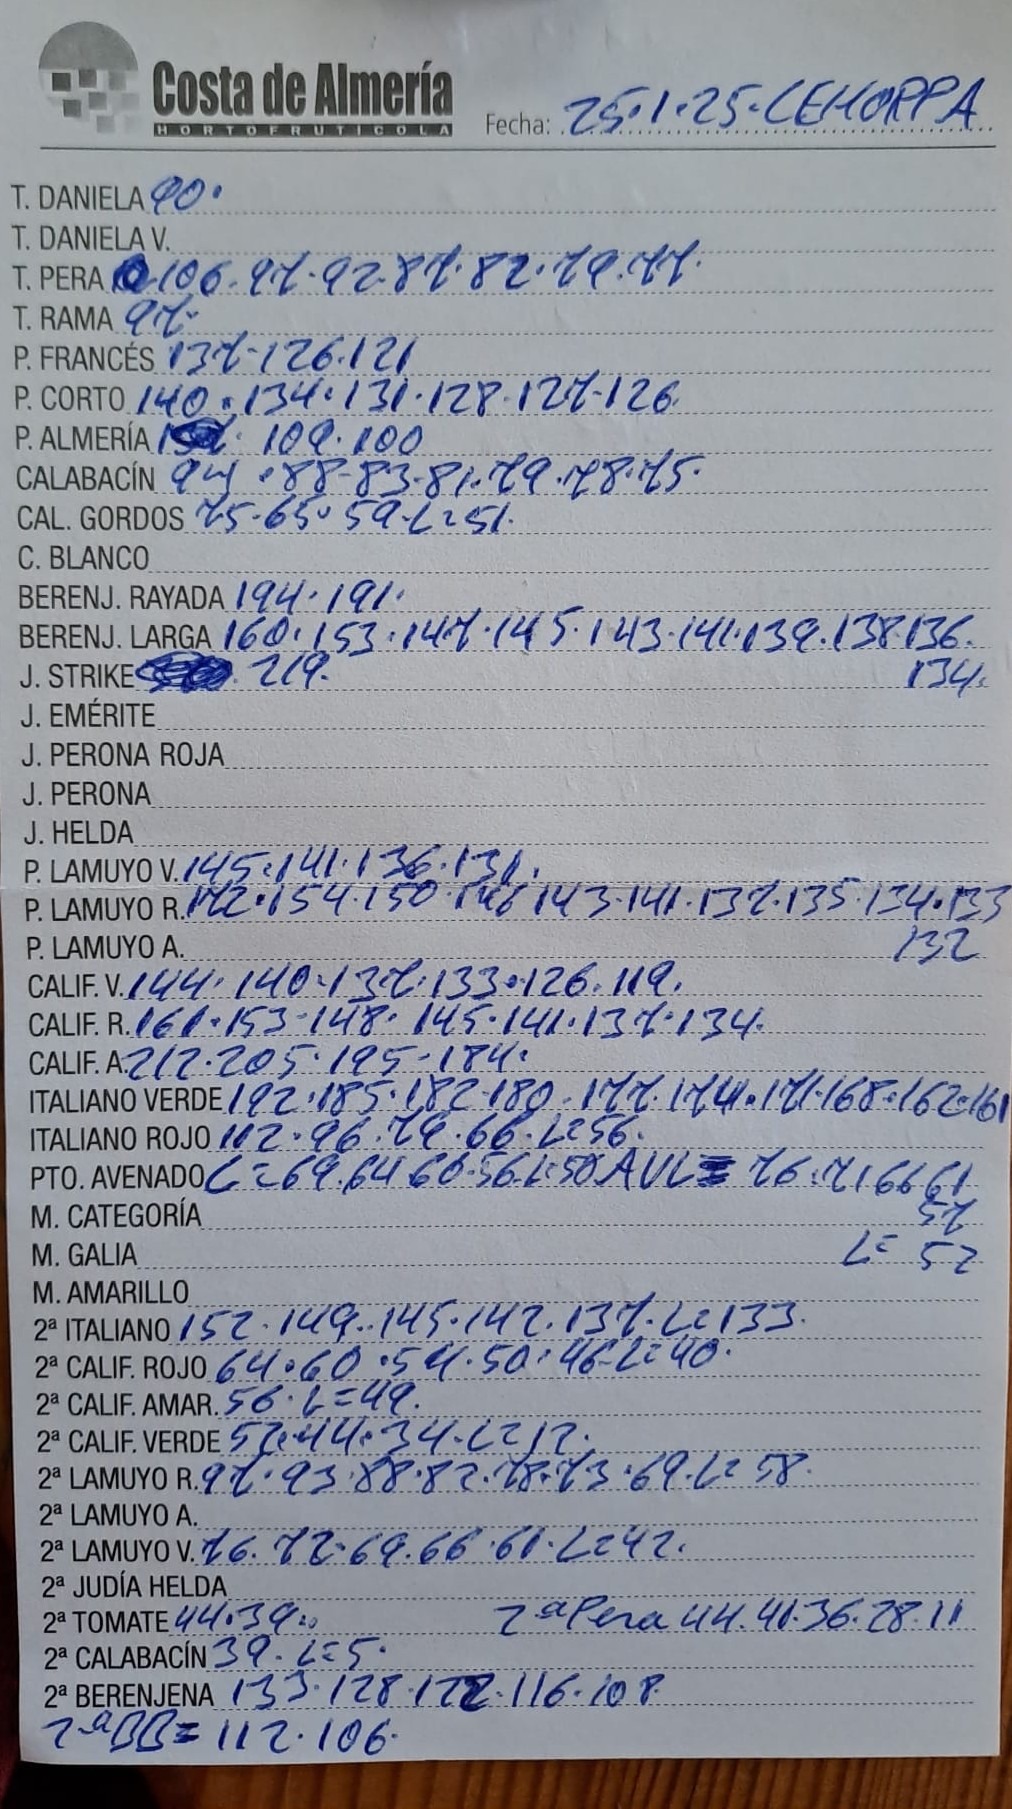 Costa de Almería
HORTOFRUTICOLA
Fecha: 25.1.25. CEHORPA
T. DANIELA 90.
T. DANIELA V.
T. PERA 106.97.92.87.82.79.77.
T. RAMA 97.
P. FRANCÉS 137-126.121
P. CORTO 140.134.131.128.127-126.
P. ALMERÍA 109.100
CALABACÍN 94.88-83.81.79.78.75.
CAL. GORDOS 75-65.59-L=51.
C. BLANCO
BERENJ. RAYADA 194.191.
BERENJ. LARGA 160.153.147.145.143.141.139.138.136.
J. STRIKE 219. 134.
J. EMÉRITE
J. PERONA ROJA
J. PERONA
J. HELDA
P. LAMUYO V. 145.141.136.131.
P. LAMUYO R. 154.150.146 143.141.137.135.134.133
P. LAMUYO A. 132
CALIF. V. 144.140.137.133.126.119.
CALIF. R. 161.153-148.145.141.137.134.
CALIF. A. 212.205.195-184.
ITALIANO VERDE 192.185.182-180.177.174.171.168.162.161
ITALIANO ROJO 112.96.79.66.L=56.
PTO. AVENADO L=69.64 60.56.L=50 AVL= 76.71 66 61
M. CATEGORÍA 57
M. GALIA L= 52
M. AMARILLO
2ª ITALIANO 152.149.145.142.137.L=133.
2ª CALIF. ROJO 64.60.54.50.46-L=40.
2ª CALIF. AMAR. 56.L=49.
2ª CALIF. VERDE 52.44.34.L=12.
2ª LAMUYO R. 97.93.88.82.78.73.69.L=58.
2ª LAMUYO A.
2ª LAMUYO V. 76.72.69.66.61.L=42.
2ª JUDÍA HELDA
2ª TOMATE 44.39. 2ª Pera 44.41.36.28.11
2ª CALABACÍN 39.L=5.
2ª BERENJENA 133.128.122.116.108
2ª BB= 112.106.